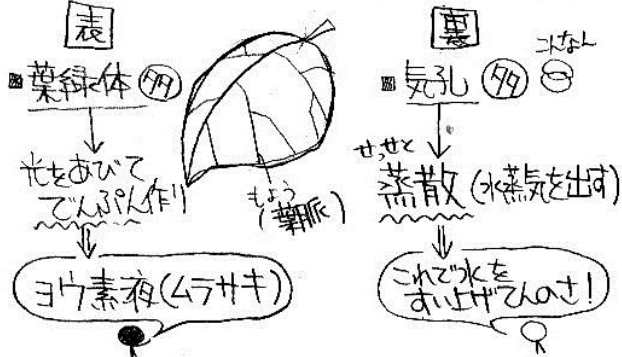 表
葉緑体 多
光をあびて
でんぷん作り
ヨウ素液(ムラサキ)
もよう
(葉脈)
裏
気孔 多
こんなん
せっせと
蒸散(水蒸気を出す)
これで水を
すい上げてんのさ!